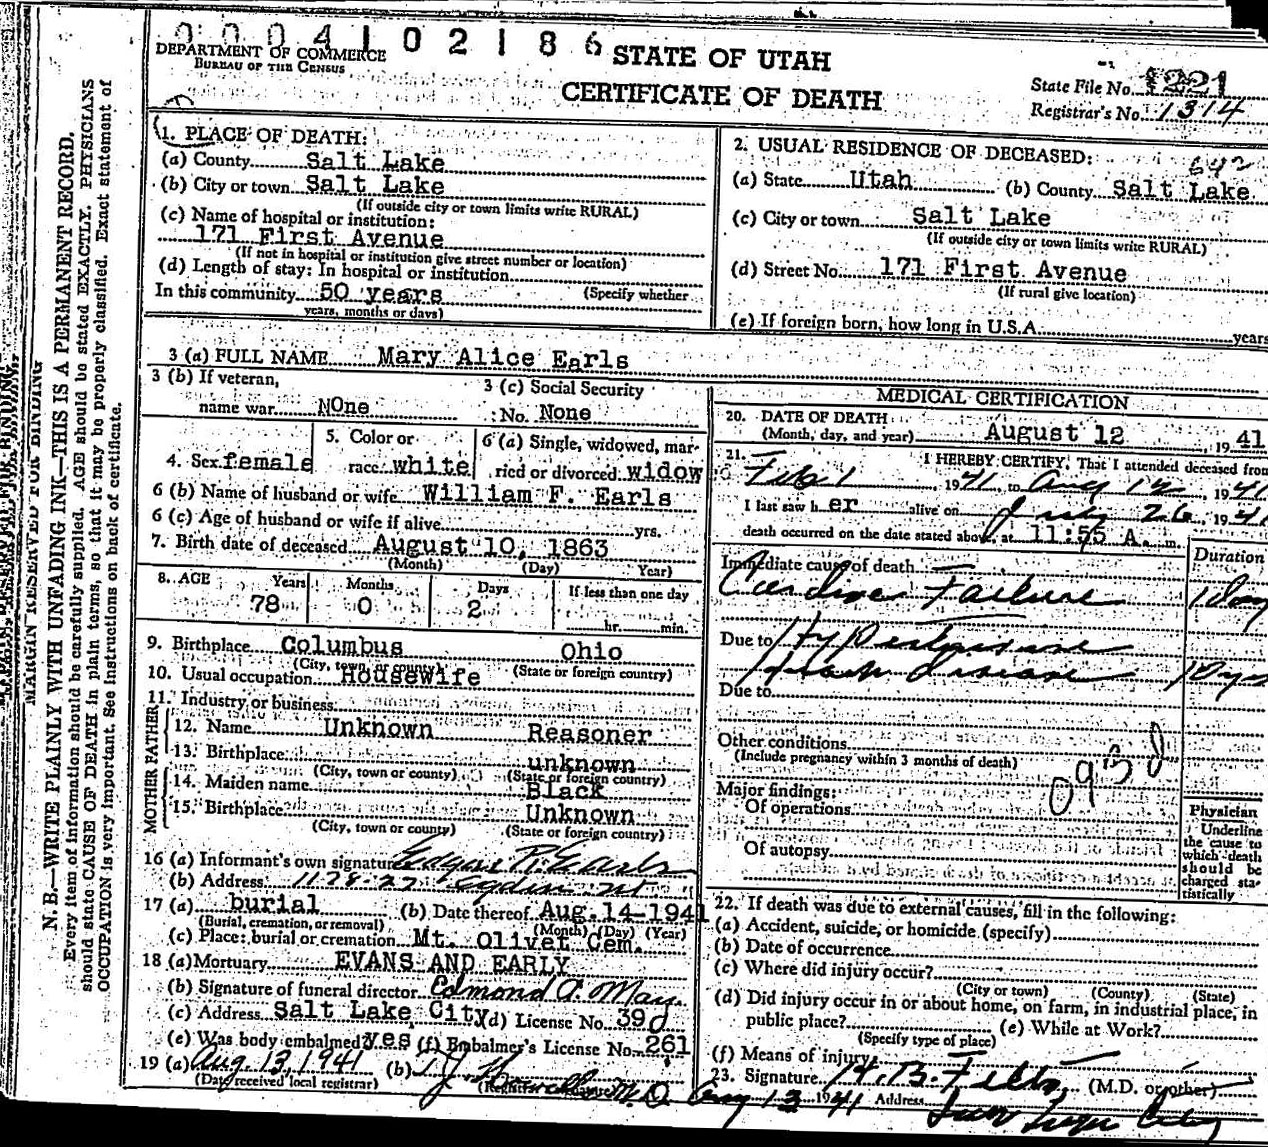 0004102186
DEPARTMENT OF COMMERCE
BUREAU OF THE CENSUS
STATE OF UTAH
CERTIFICATE OF DEATH
State File No. 1221
Registrar's No. 1314
MARGIN RESERVED FOR BINDING
N. B.—WRITE PLAINLY WITH UNFADING INK—THIS IS A PERMANENT RECORD.
Every item of information should be carefully supplied. AGE should be stated EXACTLY. PHYSICIANS
should state CAUSE OF DEATH in plain terms, so that it may be properly classified. Exact statement of
OCCUPATION is very important. See instructions on back of certificate.
1. PLACE OF DEATH:
(a) County Salt Lake
(b) City or town Salt Lake
(If outside city or town limits write RURAL)
(c) Name of hospital or institution:
171 First Avenue
(If not in hospital or institution give street number or location)
(d) Length of stay: In hospital or institution
In this community 50 years (Specify whether
years, months or days)
2. USUAL RESIDENCE OF DECEASED: 642
(a) State Utah (b) County Salt Lake
(c) City or town Salt Lake
(If outside city or town limits write RURAL)
(d) Street No. 171 First Avenue
(If rural give location)
(e) If foreign born, how long in U.S.A. years
3 (a) FULL NAME Mary Alice Earls
3 (b) If veteran,
name war NOne
3 (c) Social Security
No. None
4. Sex female
5. Color or
race white
6 (a) Single, widowed, mar-
ried or divorced widow
6 (b) Name of husband or wife William F. Earls
6 (c) Age of husband or wife if alive yrs.
7. Birth date of deceased August 10, 1863
(Month) (Day) Year)
8. AGE Years Months Days If less than one day
78 0 2 hr. min.
9. Birthplace Columbus Ohio
(City, town, or county) (State or foreign country)
10. Usual occupation Housewife
11. Industry or business
FATHER
12. Name Unknown Reasoner
13. Birthplace unknown
(City, town or county) (State or foreign country)
MOTHER
14. Maiden name Black
15. Birthplace Unknown
(City, town or county) (State or foreign country)
16 (a) Informant's own signature Edgar R. Earls
(b) Address
17 (a) burial (b) Date thereof Aug. 14-1941
(Burial, cremation, or removal) (Month) (Day) (Year)
(c) Place: burial or cremation Mt. Olivet Cem.
18 (a) Mortuary EVANS AND EARLY
(b) Signature of funeral director Edmond A. May.
(c) Address Salt Lake City (d) License No. 39
(e) Was body embalmed? yes (f) Embalmer's License No. 261
19 (a) Aug. 13, 1941 (b) M. D.
(Date received local registrar) (Registrar signature)
MEDICAL CERTIFICATION
20. DATE OF DEATH
(Month, day, and year) August 12 1941
21. I HEREBY CERTIFY, That I attended deceased from
Feb 1, 1941, to Aug 12, 1941
I last saw h er alive on July 26, 1941
death occurred on the date stated above, at 11:55 A. m.
Duration
Immediate cause of death
Cardiac Failure 1 Day
Due to Hypertensive
heart disease 10 yrs
Due to
Other conditions
(Include pregnancy within 3 months of death)
093d
Major findings:
Of operations
Of autopsy
Physician
Underline
the cause to
which death
should be
charged sta-
tistically
22. If death was due to external causes, fill in the following:
(a) Accident, suicide, or homicide (specify)
(b) Date of occurrence
(c) Where did injury occur?
(City or town) (County) (State)
(d) Did injury occur in or about home, on farm, in industrial place, in
public place? (e) While at Work?
(Specify type of place)
(f) Means of injury
23. Signature (M.D. or other)
Aug 13 1941 Address Salt Lake City